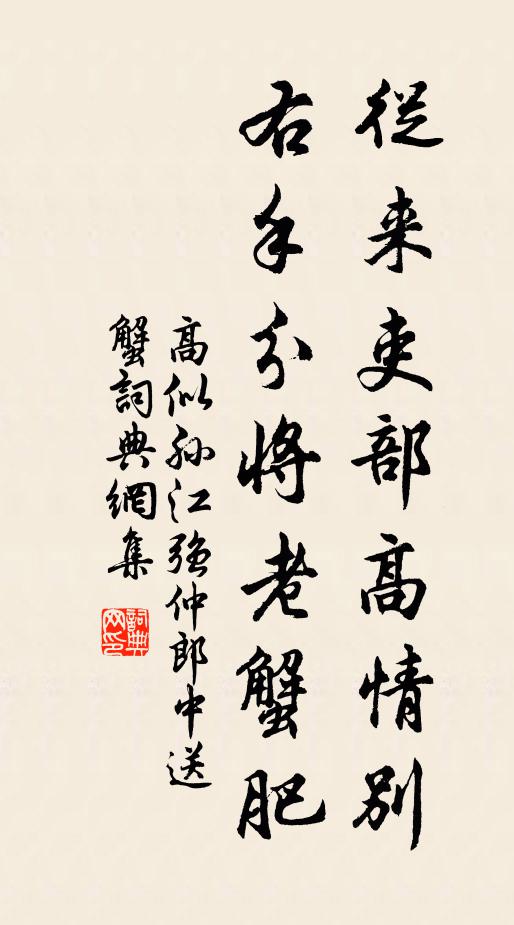 從来吏部高情別
右手分將老蟹肥
高似孫江强仲郎中送
蟹詞典網集
詞典網印